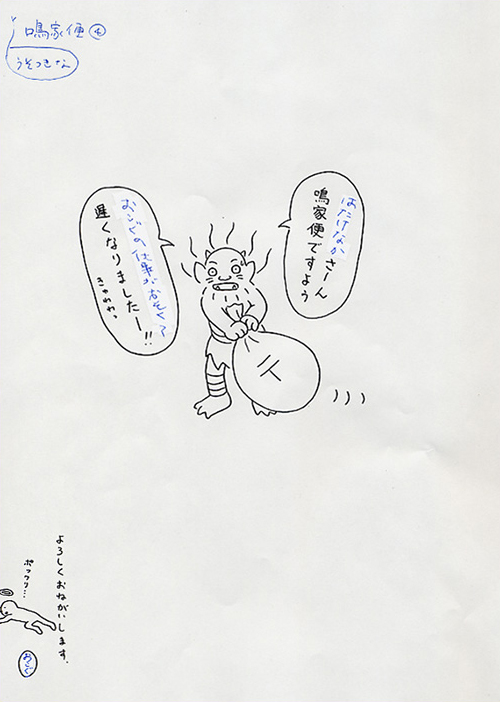 鳴家便も
うそつきな
はたけなかさーん
鳴家便ですよう
おぐぐの仕事がおそくて
遅くなりましたー!!
きゅわわ、
よろしくおねがいします.
ポックリ…
おぐぐ